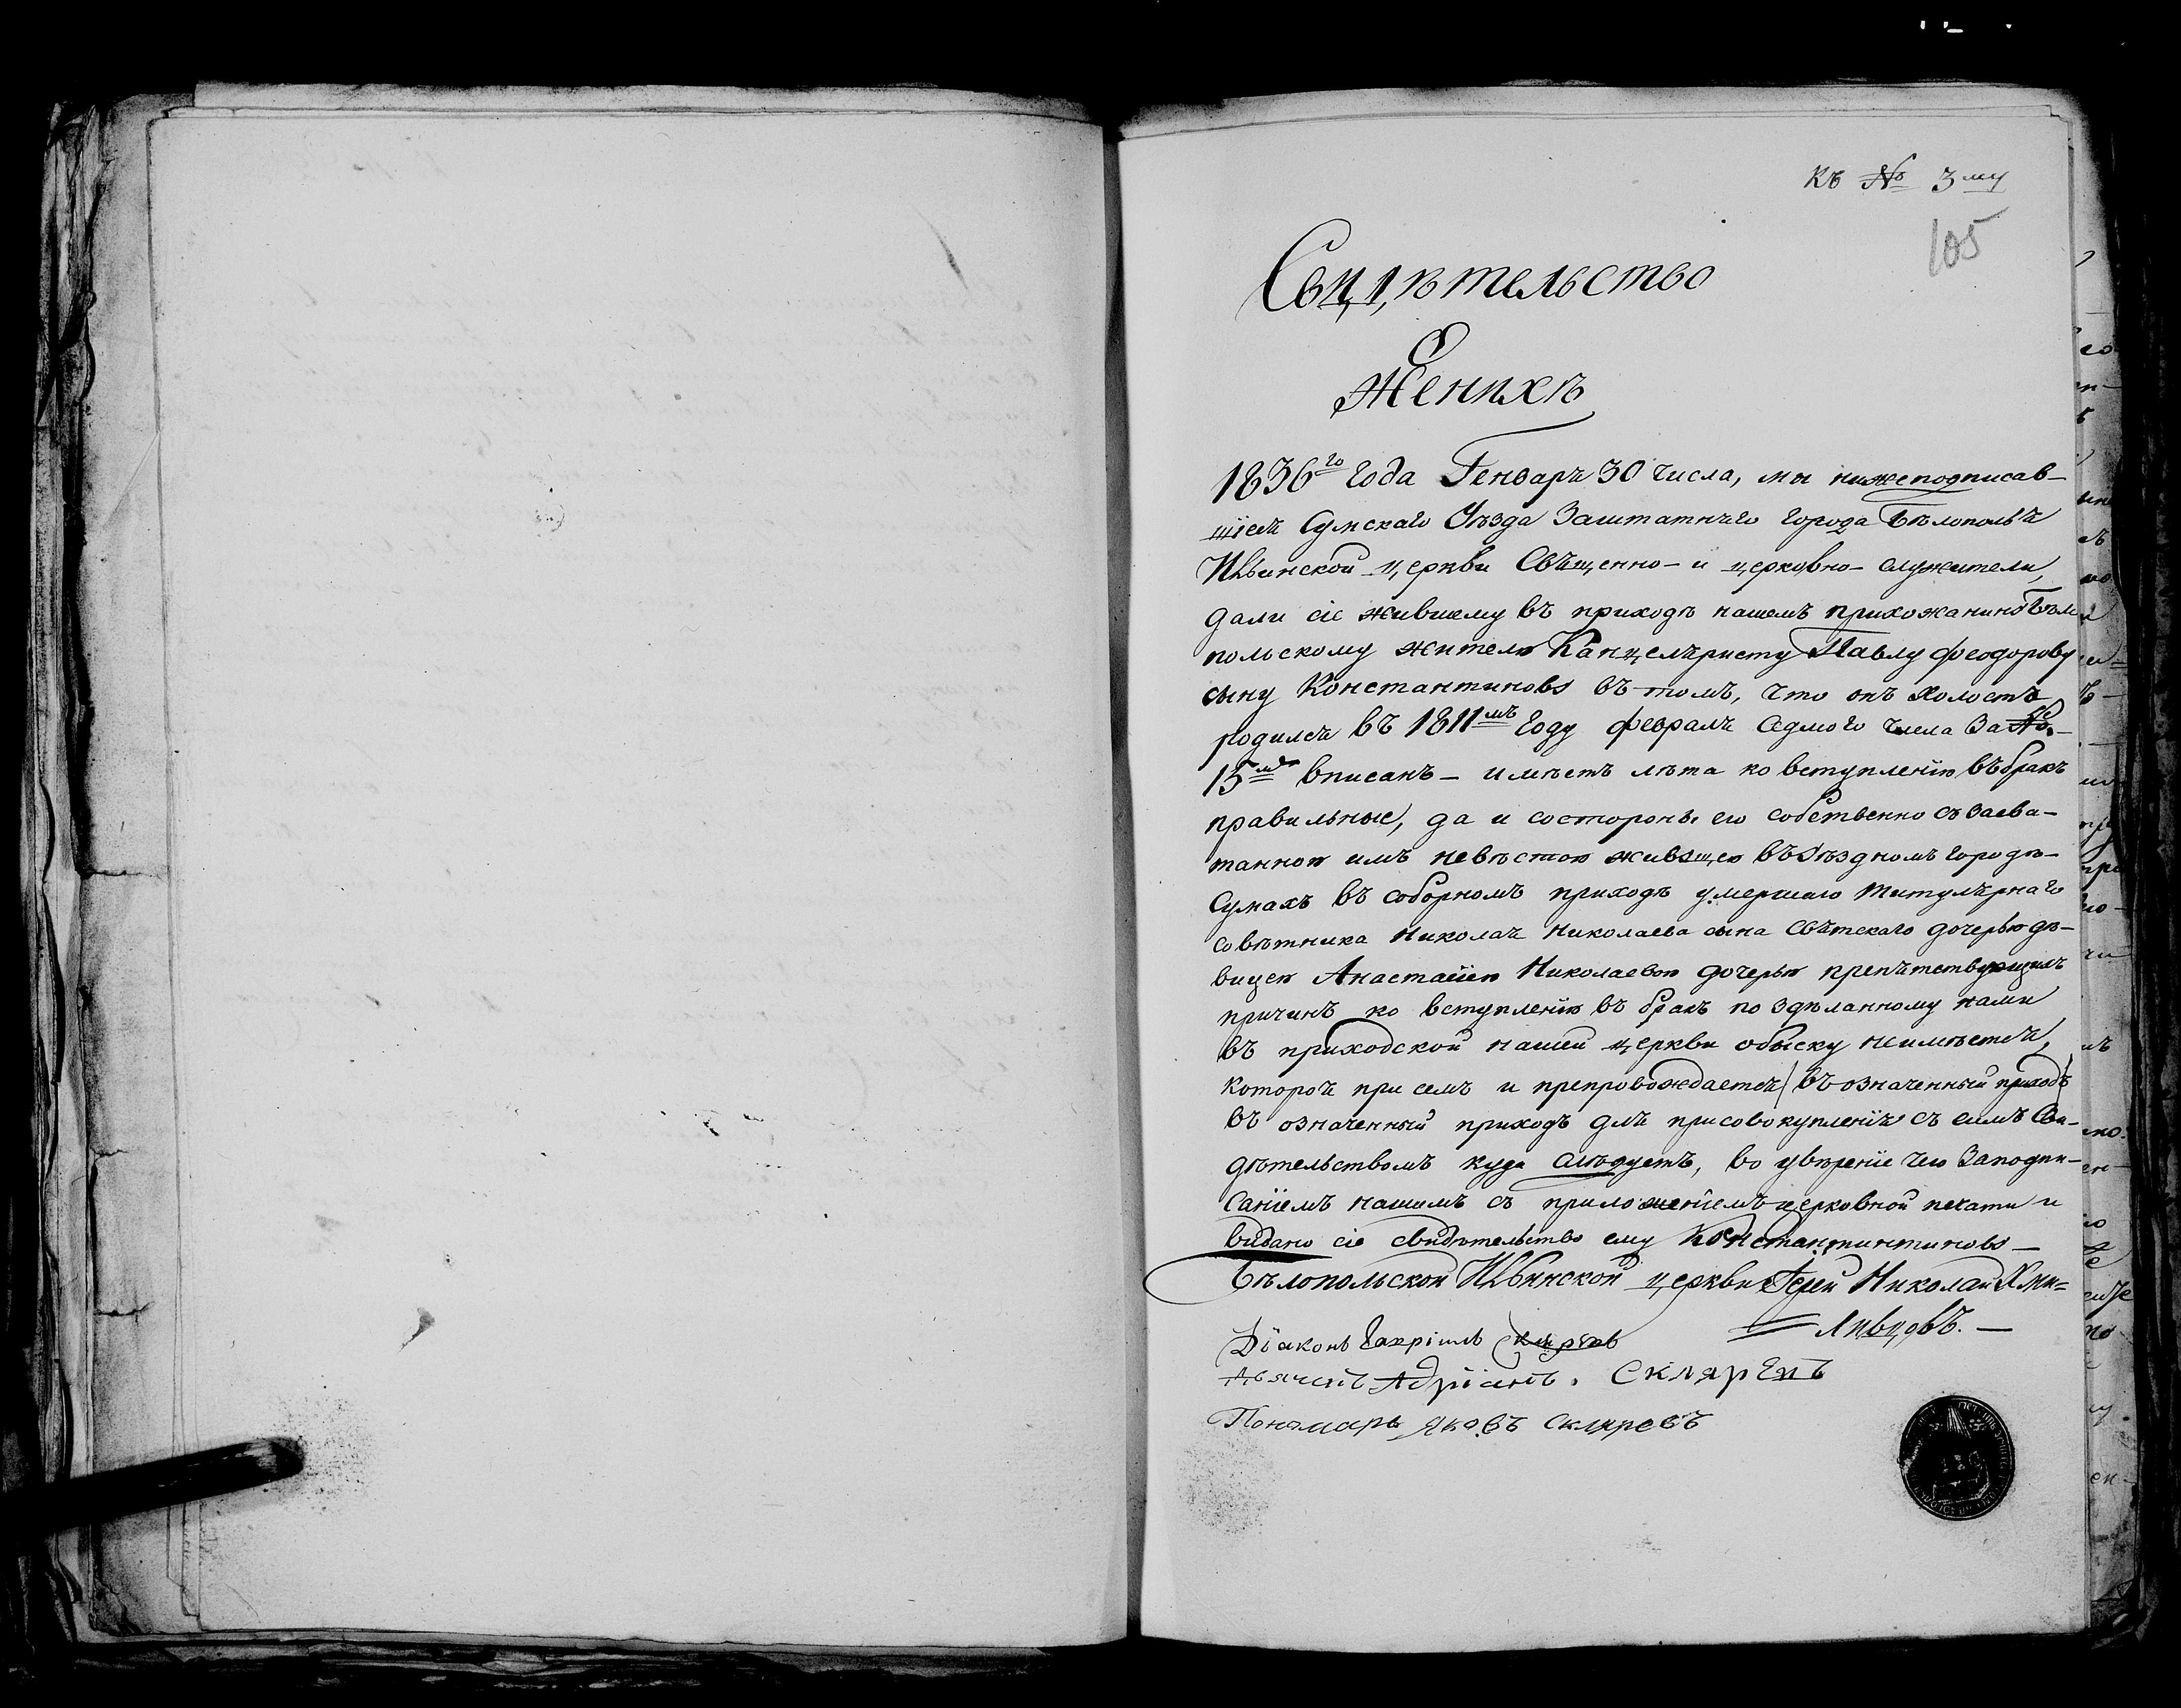 Къ № 3му
105
Свидѣтельство
Женихъ
1836го года Генваря 30 числа, мы нижеподписав-
шіеся Сумскаго Уѣзда Заштатнаго города Бѣлополья
Ильинской церкви Священно- и церковно- служители,
дали сіе жившему въ приходѣ нашемъ прихожанину Бѣло
польскому жителю Канцеляристу Павлу Феодорову
сыну Константинову въ томъ, что онъ холостъ
родился въ 1811мъ году февраля седмого числа за №
15мъ вписанъ - имѣетъ лѣта ко вступленію въ бракъ
правильные, да и состороны его собственно съ засва-
танною имъ невѣстою живущею въ Уѣздномъ городѣ-
Сумахъ въ соборномъ приходѣ умершаго титулярнаго
совѣтника Николая Николаева сына Свѣтскаго дочерью дѣ-
вицею Анастасіею Николаевою дочерью препятствующихъ
причинъ ко вступленію въ бракъ по здѣланному нами
въ приходской нашей церкви обыску неимѣется,
которой при семъ и препровождается (въ означенный приходъ)
въ означенный приходъ для присовокупленія съ симъ Сви-
дѣтельствомъ куда слѣдуетъ, во увѣреніе чего Заподпи-
саніемъ нашимъ съ приложеніемъ церковной печати и
видано сіе свидѣтельство ему Константинтинову
Бѣлопольской Ильинской церкви Іерей Николай Хми-
Ливцовъ.
Діаконъ Гавріилъ
Дьячекъ Адріанъ. Скляревъ
Пономарь Яковъ Скляревъ